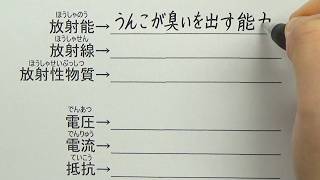 ほうしゃのう
放射能→うんこが臭いを出す能力
ほうしゃせん
放射線→
ほうしゃせいぶっしつ
放射性物質→
でんあつ
電圧→
でんりゅう
電流→
ていこう
抵抗→